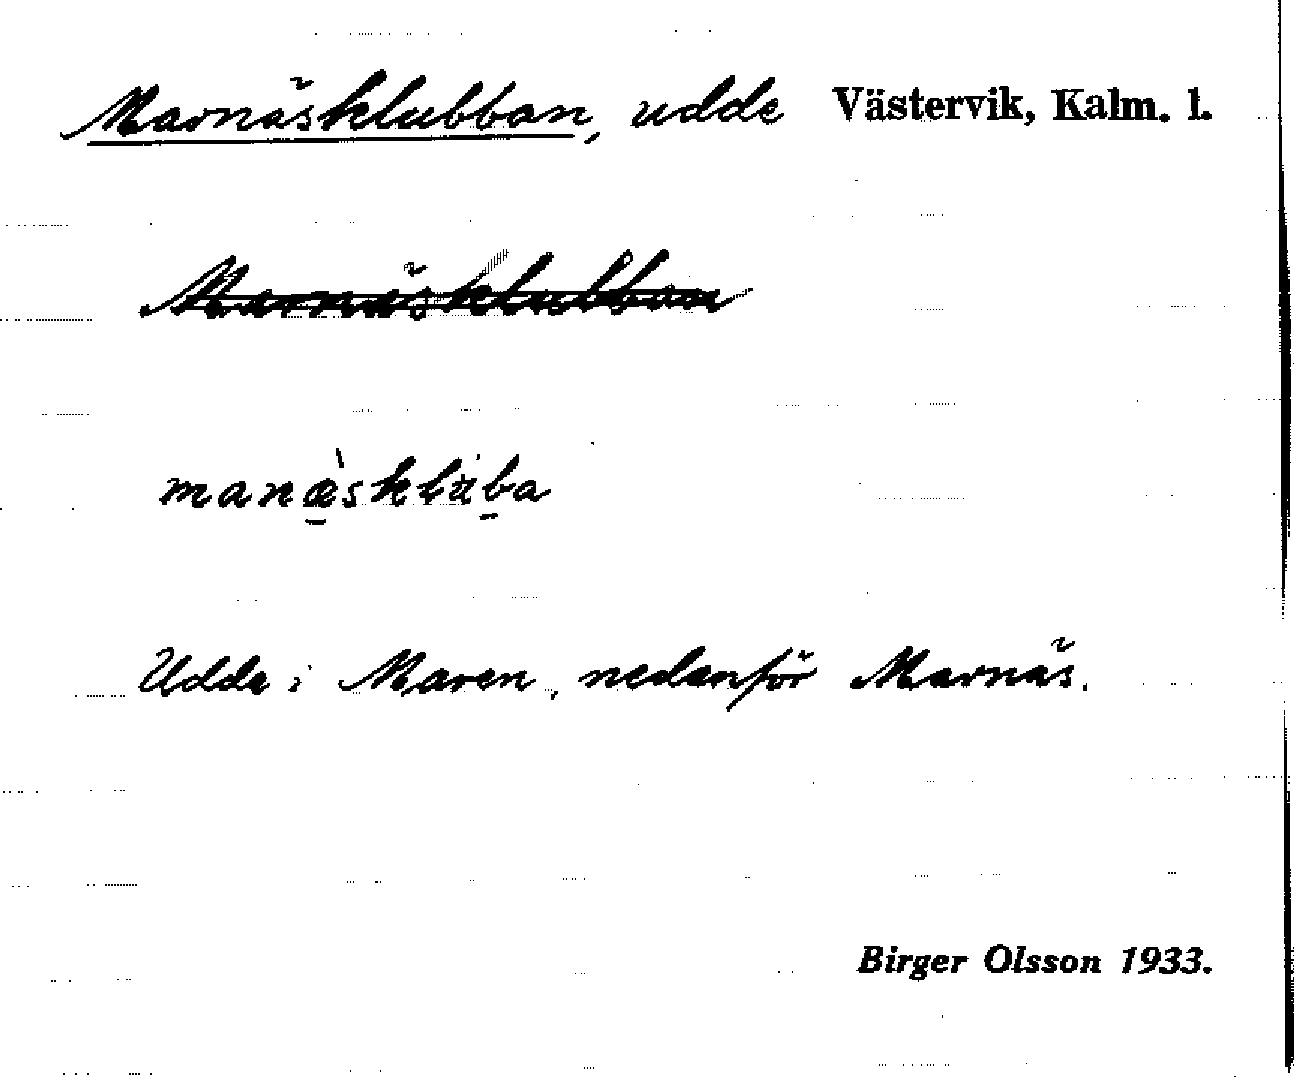 Marnäsklubban, udde Västervik, Kalm. l.
Marnäsklubban
manæ̀skluba
Udde i Maren, nedanför Marnäs.
Birger Olsson 1933.